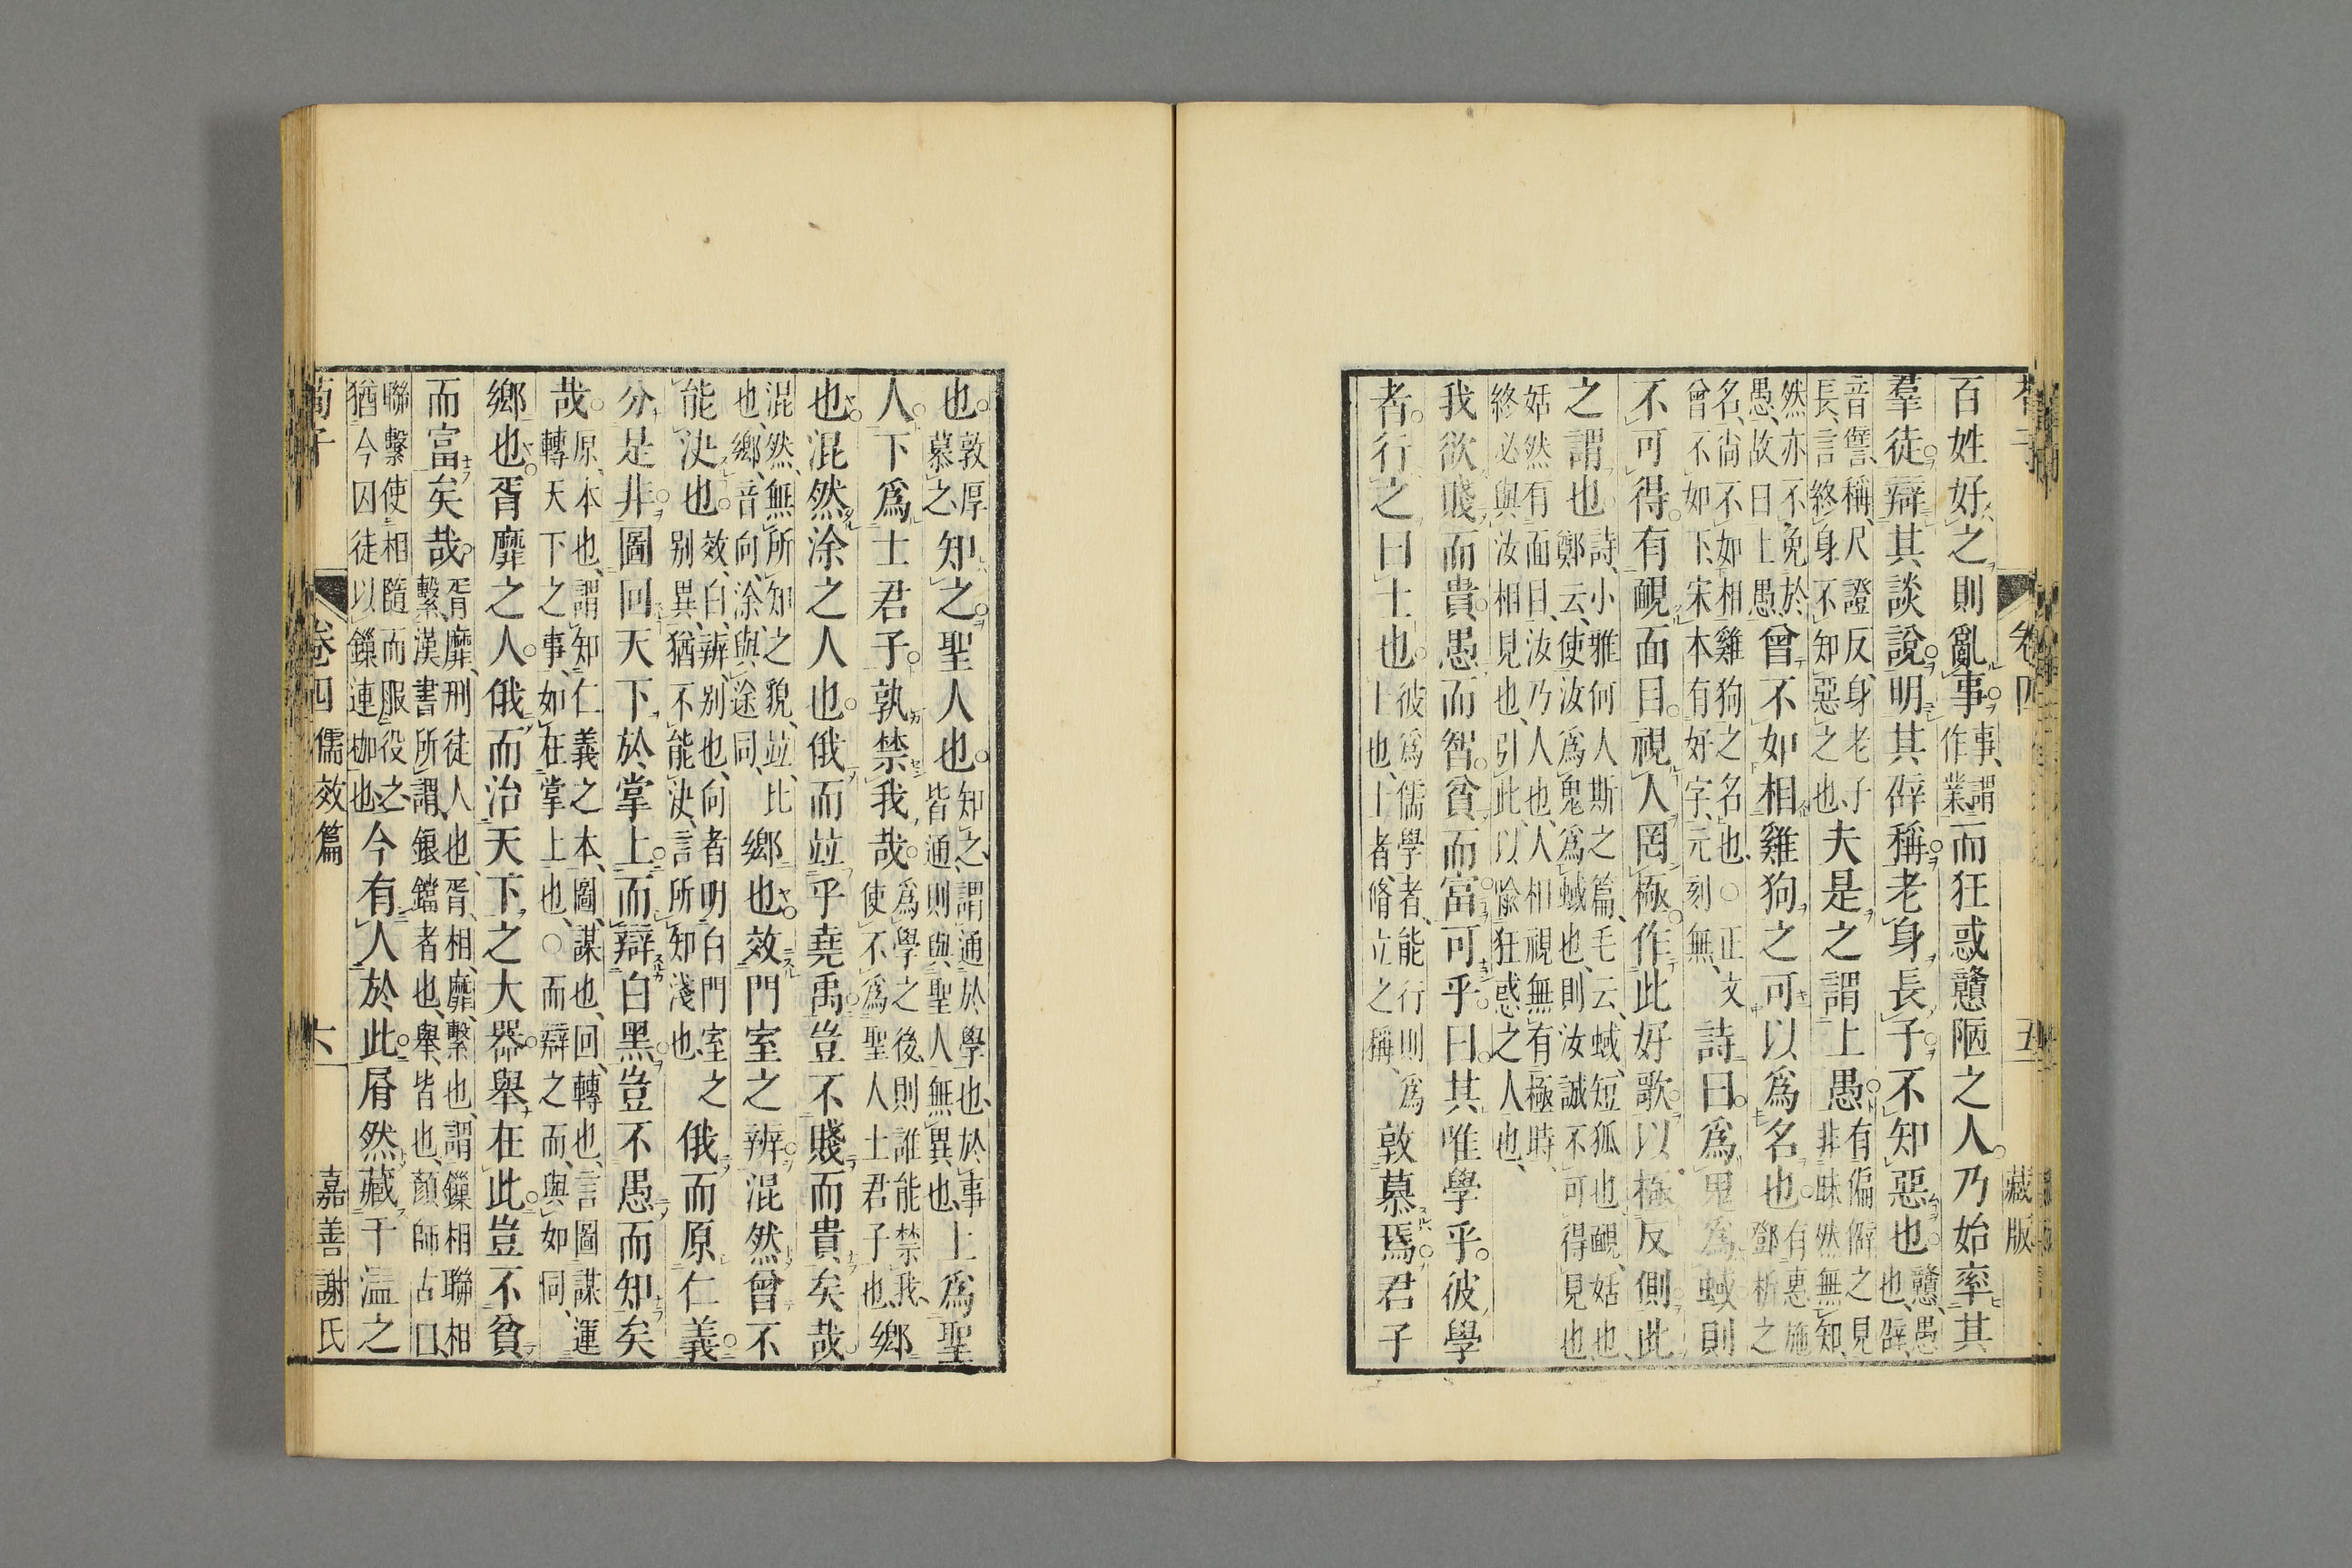 百姓好之則亂事事謂作業而狂惑戇陋之人乃始率其
羣徒辯其談說明其辟稱老身長子不知惡也戇愚也辟
音譬稱尺證反身老子長言終身不知惡之也夫是之謂上愚有偏僻之見非昧然無知
然亦不免於愚故曰上愚曾不如相雞狗之可以爲名也有惠施鄧析之
名尙不如相雞狗之名也○正文曾不如下宋本有好字元刻無詩曰爲鬼爲蜮則
不可得有靦面目視人罔極作此好歌以極反側此
之謂也詩小雅何人斯之篇毛云蜮短狐也靦姡也鄭云使汝爲鬼爲蜮也則汝誠不可得見也
姡然有面目汝乃人也人相視無有極時終必與汝相見也引此以喩狂惑之人也
我欲賤而貴愚而智貧而富可乎曰其唯學乎彼學
者行之曰士也彼爲儒學者能行則爲士也士者脩立之稱敦慕焉君子
卷四
五
藏版
也敦厚慕之知之聖人也知之謂通於學也於事皆通則與聖人無異也上爲聖
人下爲士君子孰禁我哉爲學之後則誰能禁我使不爲聖人士君子也鄉
也混然涂之人也俄而竝乎堯禹豈不賤而貴矣哉
混然無所知之貌竝比也鄉音向涂與途同鄉也效門室之辨混然曾不
能決也效白辨别也向者明白門室之别異猶不能決言所知淺也俄而原仁義
分是非圖回天下於掌上而辯白黑豈不愚而知矣
哉原本也謂知仁義之本圖謀也回轉也言圖謀運轉天下之事如在掌上也○而辯之而與如同
鄉也胥靡之人俄而治天下之大器舉在此豈不貧
而富矣哉胥靡刑徒人也胥相靡繫也謂鏁相聯相繫漢書所謂鋃鐺者也舉皆也顏師古曰
聯繫使相隨而服役之猶今囚徒以鏁連枷也今有人於此屑然藏千溢之
荀子
卷四
儒效篇
六
嘉善謝氏